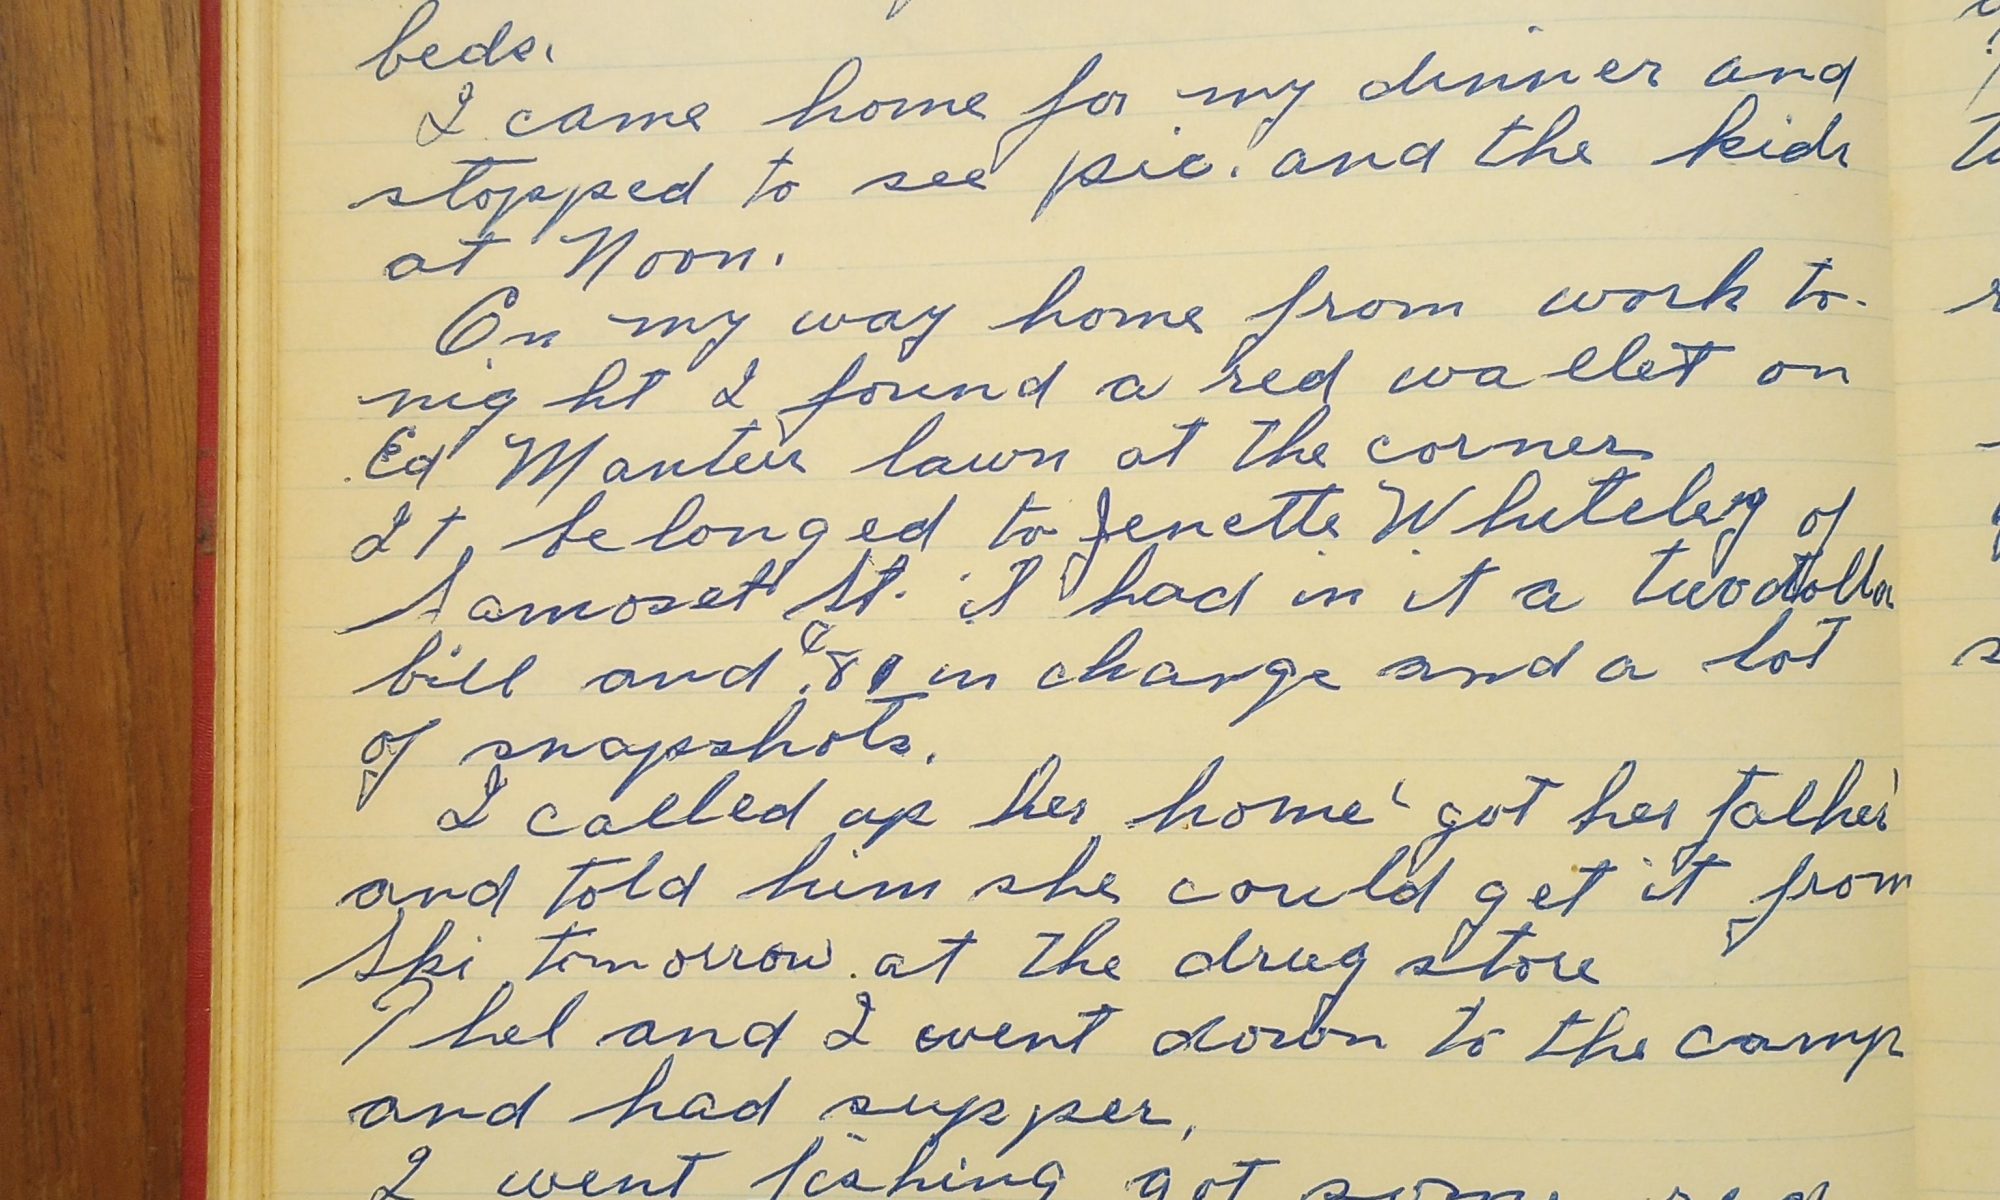 beds.
I came home for my dinner and
stopped to see pic. and the kids
at Noon.
On my way home from work to-
night I found a red wallet on
Ed Manter lawn at the corner
It belonged to Jenette Whiteley of
Samoset St. it had in it a two dollar
bill and .81 in change and a lot
of snapshots.
I called up her home got her father
and told him she could get it from
Ski tomorrow at the drug store
Thel and I went down to the camp
and had supper.
I went fishing got some red